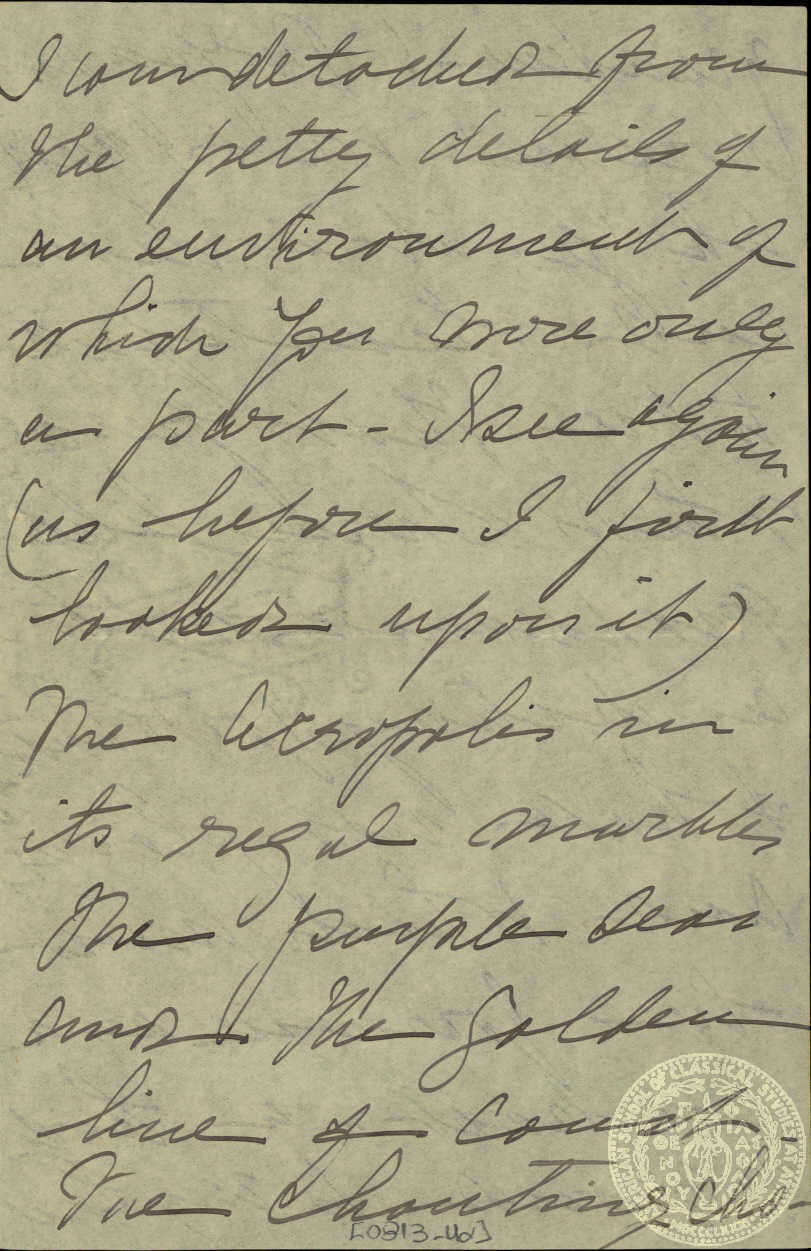 I am detached from
the petty details of
an environment of
which you were only
a part - I see again
(as before I first
looked upon it)
The Acropolis in
its regal marbles
The purple seas
and the Golden
line of coast -
The chanting cho-
[0813-4a]
AMERICAN SCHOOL OF CLASSICAL STUDIES AT ATHENS